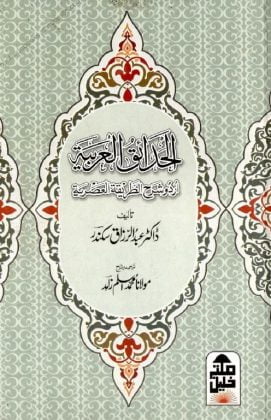 الحدائق العربية
اردو شرح الطريقة العصرية
تأليف
ڈاکٹر عبدالرزاق سکندر
ترجمہ وشرح
مولانا محمد مسلم زاہد
مکتبہ خلیل